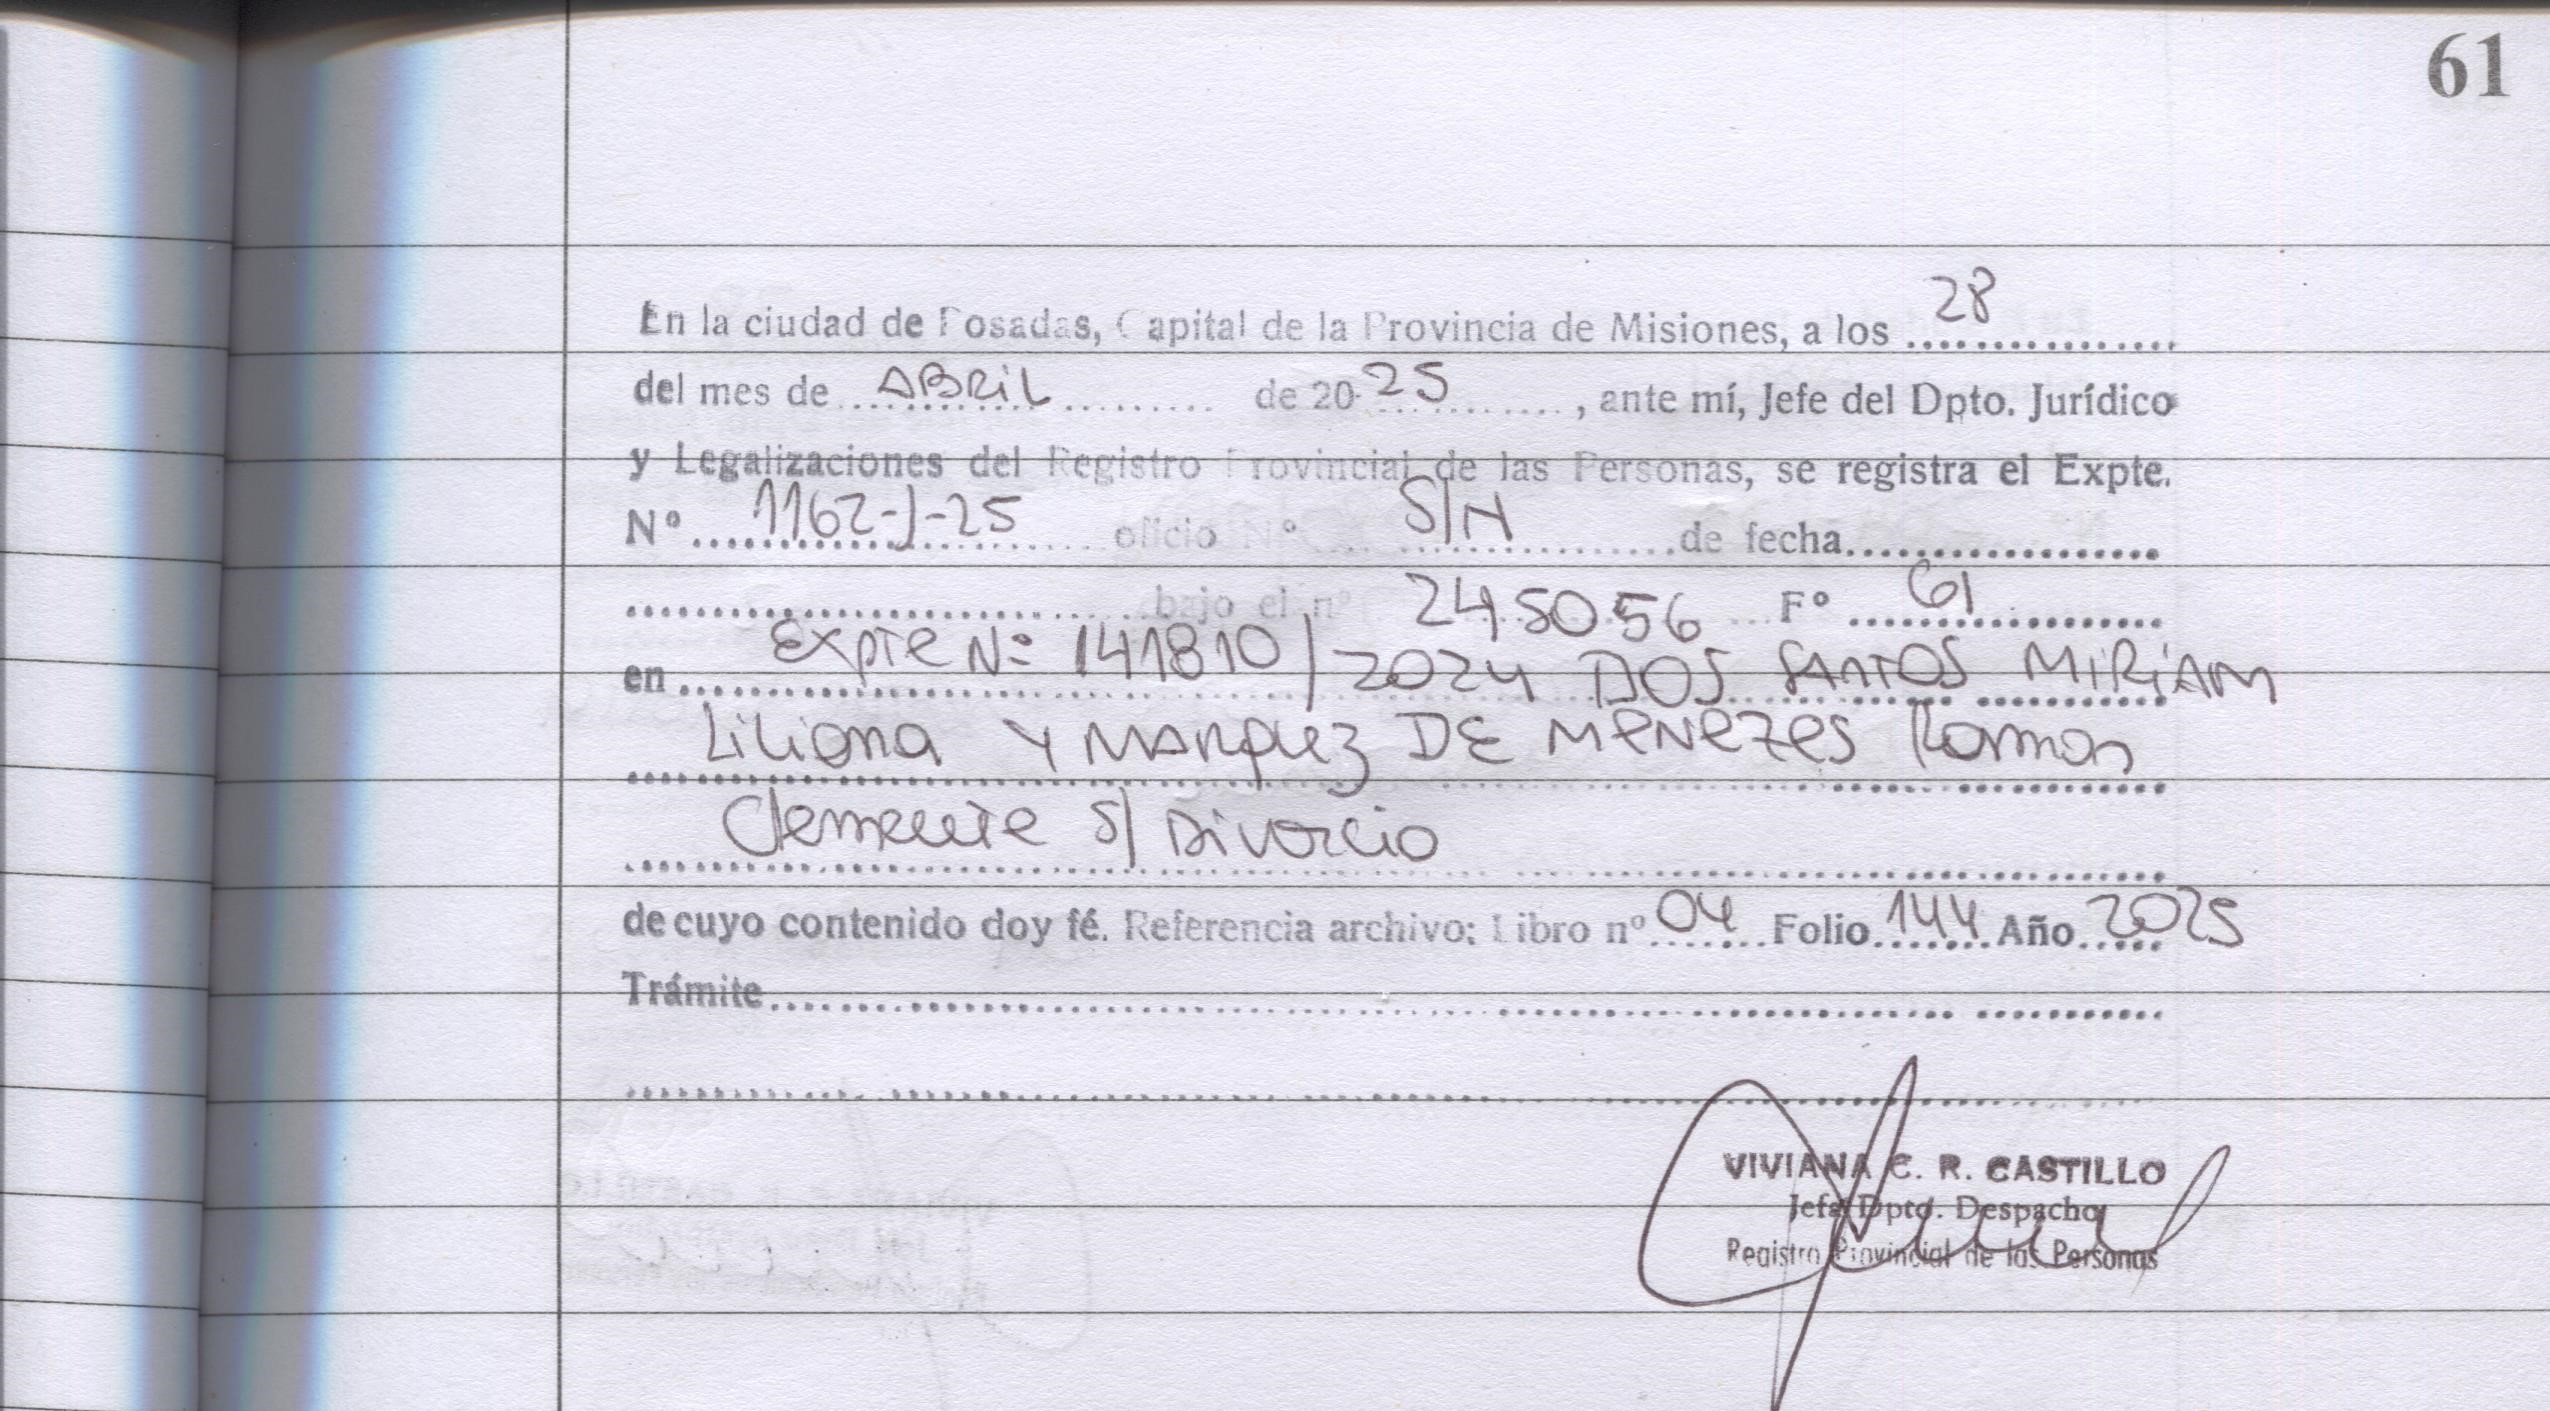 61
En la ciudad de Posadas, Capital de la Provincia de Misiones, a los 28
del mes de ABRIL de 2025, ante mí, Jefe del Dpto. Jurídico
y Legalizaciones del Registro Provincial de las Personas, se registra el Expte.
Nº 1162-J-25 oficio Nº S/N de fecha
bajo el nº 245056 Fº 61
en Expte Nº 141810/2024 DOS SANTOS MIRIAM
Liliana Y MARQUEZ DE MENEZES Ramon
Clemente S/ Divorcio
de cuyo contenido doy fé. Referencia archivo: Libro nº 04 Folio 144 Año 2025
Trámite
VIVIANA C. R. CASTILLO
Jefa Dpto. Despacho
Registro Provincial de las Personas